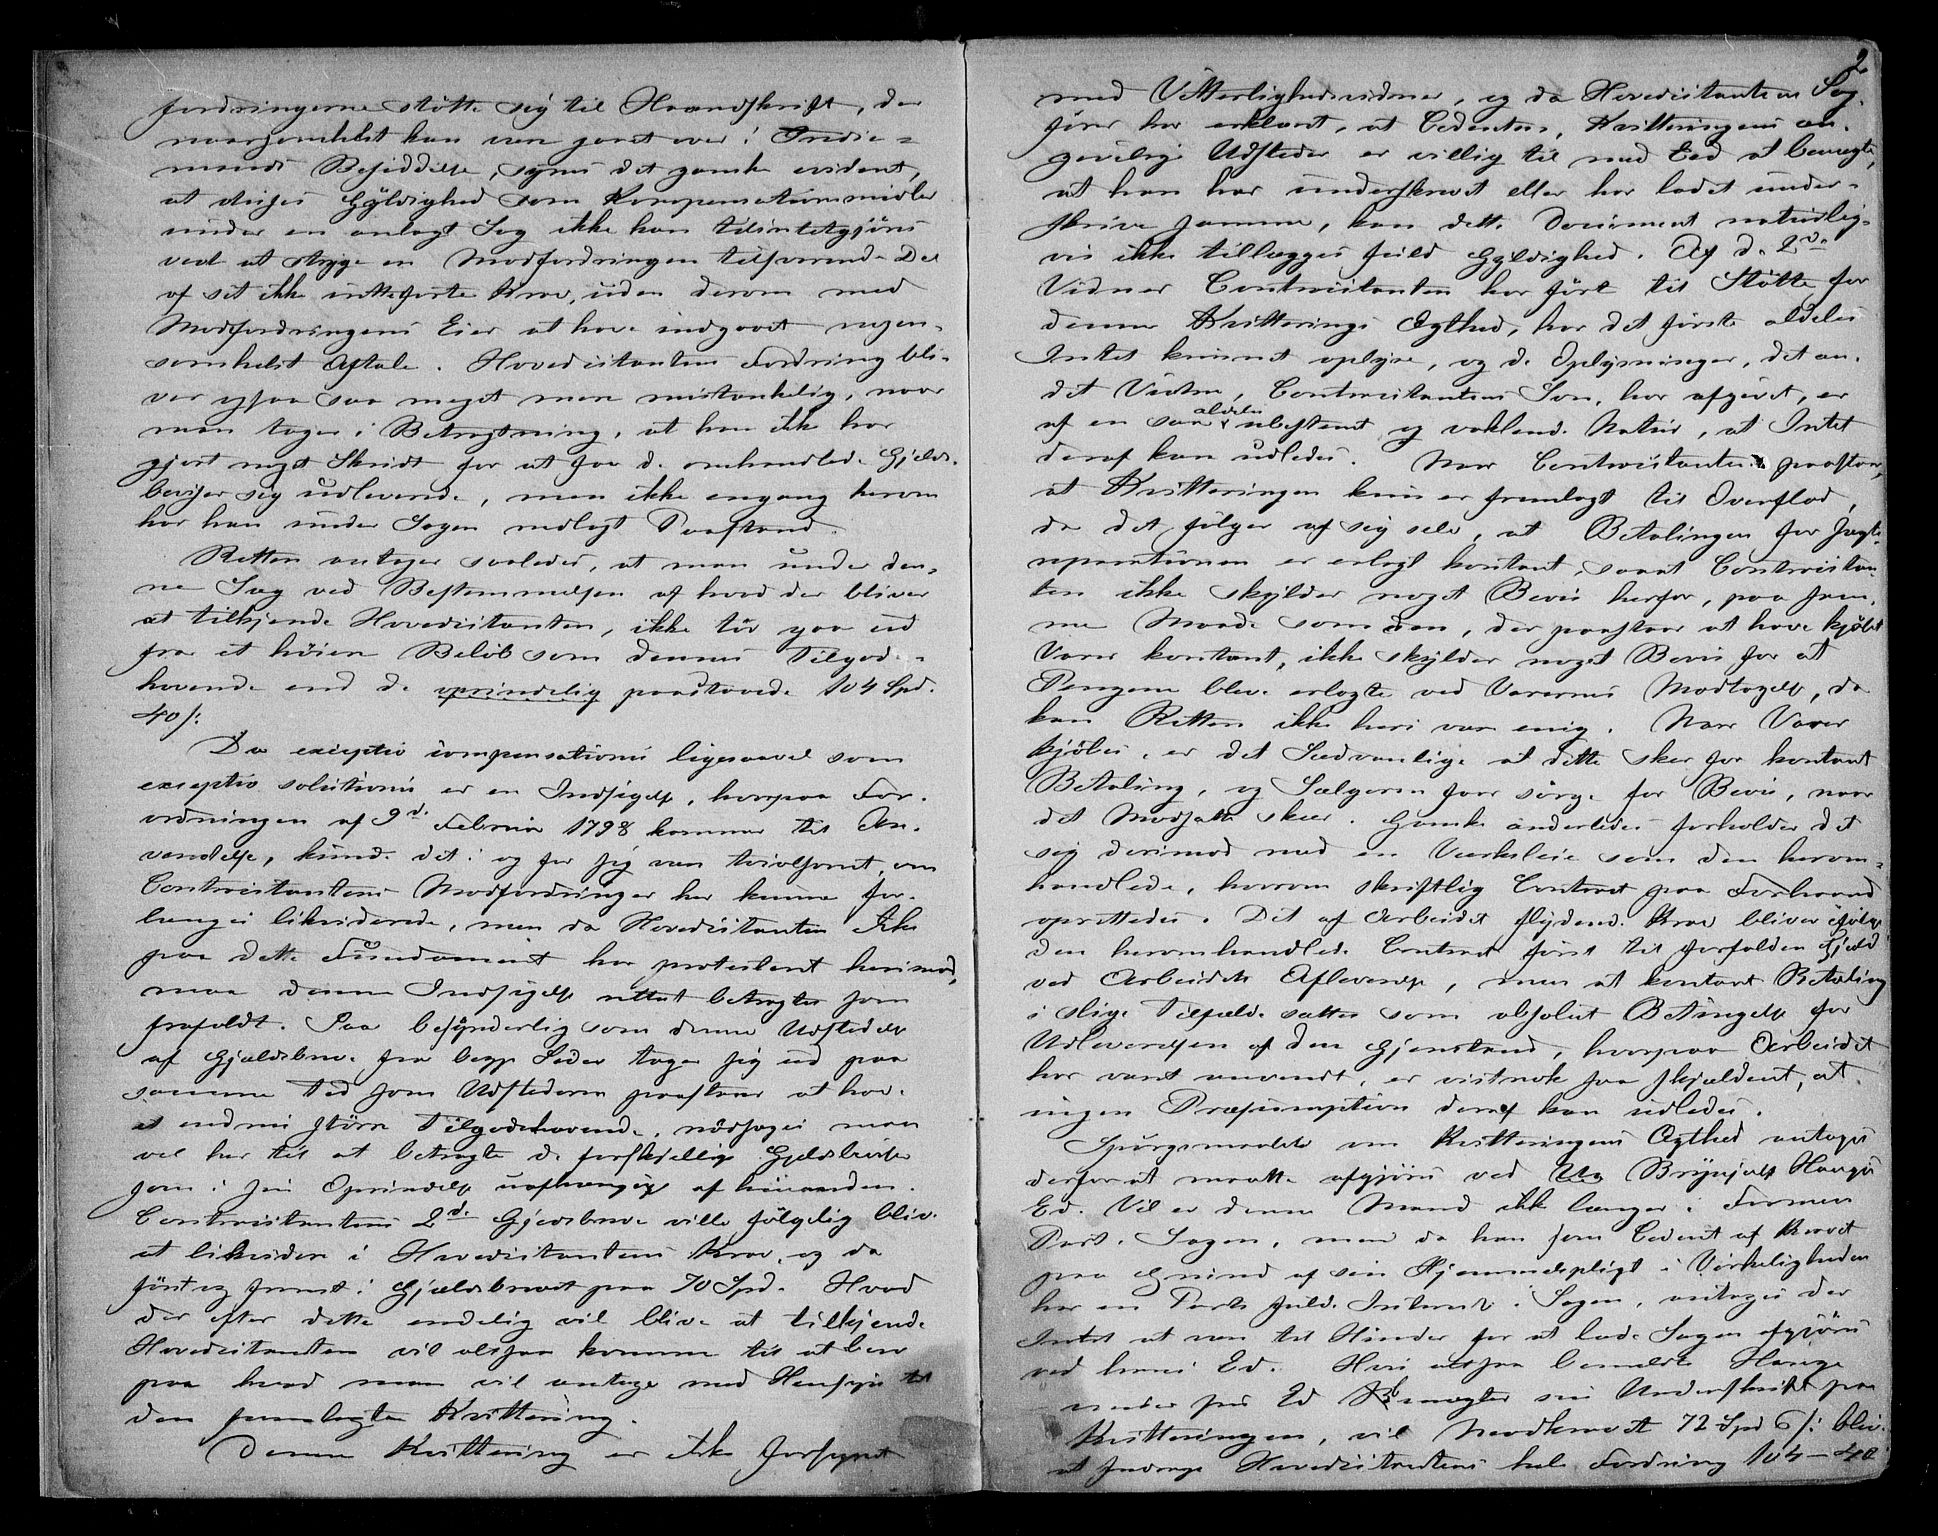 fordringerne støtte sig til Haandskrift, der
være gaaet over i Tredie-
mands Besiddelse, synes det ganske evident,
at disses Gyldighed som Kompensationsmidler
under en anlagt Sag ikke kan tilintetgjøres
ved at stryge en Modfordringen tilsvarende Del
af sit ikke Krav, uden derom med
Modfordringens Eier at have indgaaet nogen-
somhelst Aftale. Hovedcitantens Fordring bli-
ver ogsaa saa meget mere mistænkelig, naar
man tager i Betragtning, at han ikke har
gjort noget Skridt for at faa de omhandlede Gjælds-
beviser sig udleverede, men ikke engang herom
har han under Sagen nedlagt Paastand.
Retten antager saaledes, at man under den-
ne Sag ved Bestemmelsen af hvad der bliver
at tilkjende Hovedcitanten, ikke tør gaa ud
fra et høiere Beløb som dennes Tilgode-
havende end de oprindelig paastævnede 104 Spd.
40 s:
Da exceptio compensationis ligesaavel som
exceptio solutionis er en Indsigelse, hvorpaa For-
ordningen af 9d. Februar 1798 kommer til An-
vendelse, kunde det i og for sig være tvivlsomt, om
Contracitantens Modfordringer her kunne for-
langes likviderede, men da Hovedcitanten ikke
paa dette Fundament har protesteret herimod,
maa denne Indsigelse rettest betragtes som
frafaldt. Saa besynderlig som denne Udstedelse
af Gjældsbreve fra begge Sider tager sig ud paa
samme Tid som Udstederen paastaar at have
et endnu større Tilgodehavende, nødsages man
vel her til at betragte de forskjellige Gjeldsbeviser
som i sin Oprindelse uafhængige af hinanden.
Contracitantens 2d. Gjeldsbreve ville følgelig blive
at likvidere i Hovedcitantens Krav, og da
først og fremst i Gjældsbrevet paa 70 Spd. Hvad
der efter dette endelig vil blive at tilkjende
Hovedcitanten vil altsaa komme til at bero
paa hvad man vil antage med Hensyn til
den fremlagte Kvittering.
Denne Kvittering er ikke forsynet
2
med Vitterlighedsvidner, og da Hovedcitantens Sag-
fører har erklæret, at Cedenten, Kvitteringens an-
givelige Udsteder er villig til med Eed at benægte,
at han har underskrevet eller har ladet under-
skrive samme, kan dette Document naturlig-
vis ikke tillægges fuld Gyldighed. Af de 2de
Vidner Contracitanten har ført til Støtte for
denne Kvitterings Ægthed, har det første aldeles
Intet kunnet oplyse, og de Oplysninger, det an-
det Vidne, Contracitantens Søn, har afgivet, er
af en saa aldeles ubestemt og vaklende Natur, at Intet
deraf kan udledes. Naar Contracitanten paastaar,
at Kvitteringen kun er fremlagt til Overflod,
da det følger af sig selv, at Betalingen for Jagte-
reparationen er erlagt kontant, saaat Contracitan-
ten ikke skylder noget Bevis herfor, paa sam-
me Maade som den, der paastaar at have kjøbt
Varer kontant, ikke skylder noget Bevis for at
Pengene bleve erlagte ved Varernes Modtagelse, da
kan Retten ikke heri være enig. Naar Varer
kjøbes, er det Sædvanlige at dette sker for kontant
Betaling, og Sælgeren faar sørge for Bevis, naar
det Modsatte skeer. Ganske anderledes forholder det
sig derimod med en Værksleie som den herom-
handlede, hvorom skriftlig Contract paa Forhaand
oprettedes. Det af Arbeidet flydende Krav bliver ifølge
den heromhandlede Contract først til forfalden Gjæld
ved Arbeidets Aflevering, men at kontant Betaling
i slige Tilfælde sættes som absolut Betingelse for
Udleverelsen af den Gjenstand, hvorpaa Arbeidet
har været anvendt, er vistnok saa skjældent, at
ingen Præsumption deraf kan udledes.
Spørgsmaalet om Kvitteringens Ægthed antages
derfor at maatte afgjøres ved Brynjulf Hauges
Ed. Vel er denne Mand ikke længer i Formen
Part i Sagen, men da han som Cedent af Kravet
paa Grund af sin Hjemmelspligt i Virkeligheden
har en Parts fulde Interesse i Sagen, antages der
Intet at være til Hinder for at lade Sagen afgjøres
ved hans Ed. Hvis altsaa bemeldte Hauge
under sin Ed Benægter sin Underskrift paa
Kvitteringen, vil Modkravet 72 Spd 6 s: blive
at fradrage Hovedcitantens hele Fordring 104 - 40